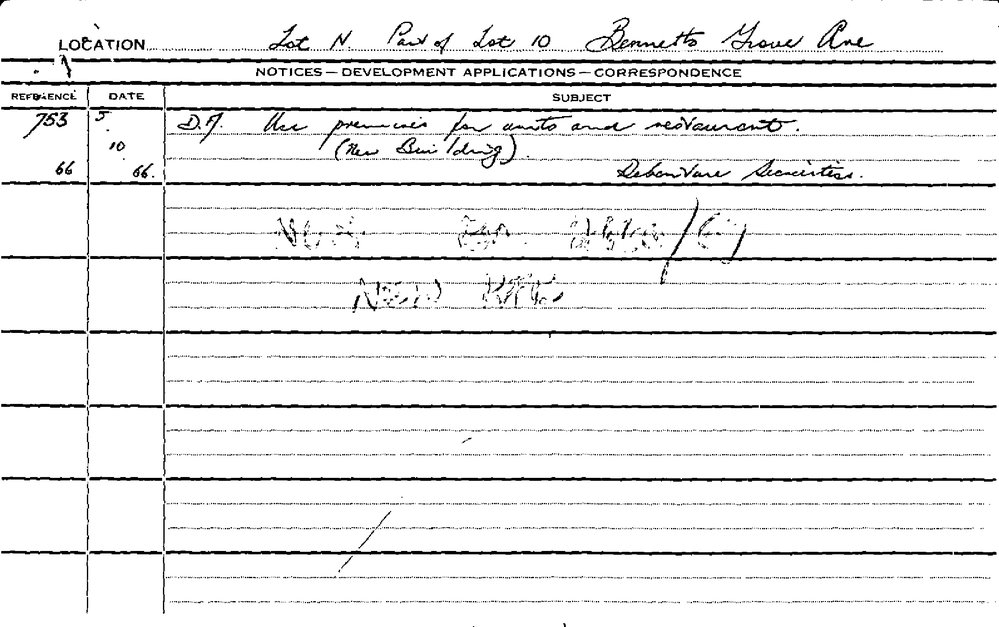 LOCATION Lot N. Part of Lot 10 Bennetts Grove Ave
NOTICES — DEVELOPMENT APPLICATIONS — CORRESPONDENCE
REFERENCE DATE SUBJECT
753 5. D.A. Use premises for units and restaurant.
10 (New Building).
66 66. Securities.
NEW